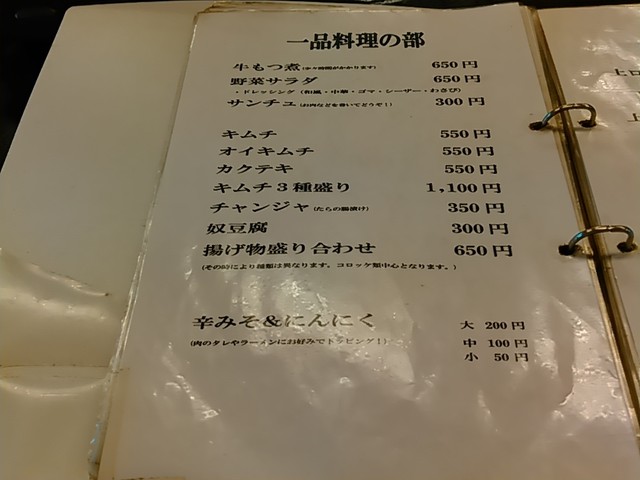 一品料理の部
牛もつ煮(少々時間がかかります) 650円
野菜サラダ 650円
・ドレッシング(和風・中華・ゴマ・シーザー・わさび)
サンチュ(お肉などを巻いてどうぞ!) 300円
キムチ 550円
オイキムチ 550円
カクテキ 550円
キムチ3種盛り 1,100円
チャンジャ(たらの腸漬け) 350円
奴豆腐 300円
揚げ物盛り合わせ 650円
(その時により種類は異なります。コロッケ類中心となります。)
辛みそ&にんにく 大 200円
(肉のタレやラーメンにお好みでトッピング!) 中 100円
小 50円
上ロ
上